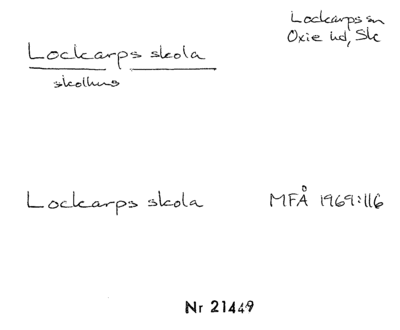 Lockarps sn
Oxie hd, Sk
Lockarps skola
skolhus
Lockarps skola MFÅ 1969:116
Nr 21449